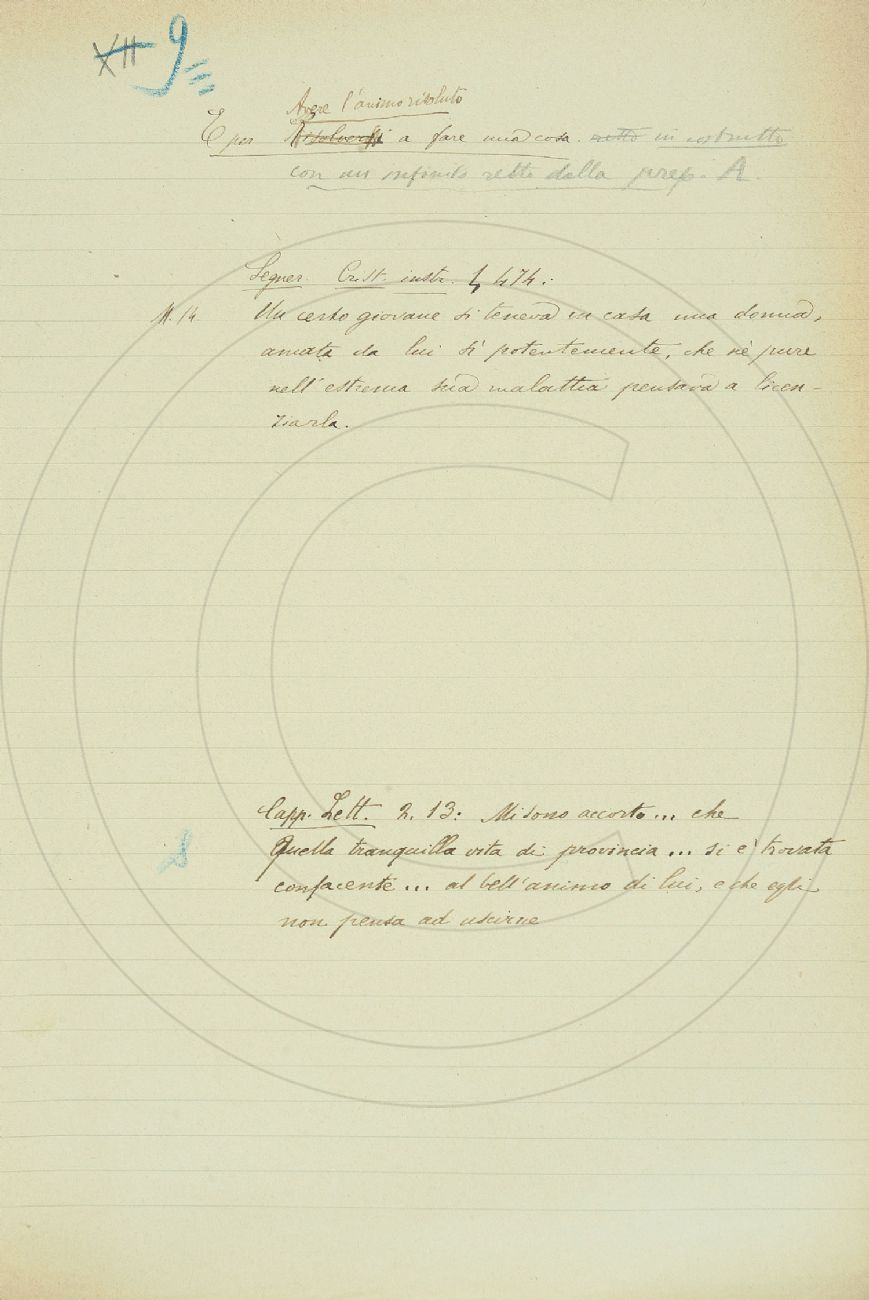 XII 9
Avere l'animo risoluto
E per Risolversi a fare una cosa. retto in costrutto
con un infinito retto dalla prep. A.
Segner. Crist. instr. 1, 474:
M. 14. Un certo giovane si teneva in casa una donna,
amata da lui sì potentemente, che nè pure
nell'estrema sua malattia pensava a licen-
ziarla.
Capp. Lett. 2. 13: Mi sono accorto... che
quella tranquilla vita di provincia... si è trovata
confacente... al bell'animo di lui, e che egli
non pensa ad uscirne